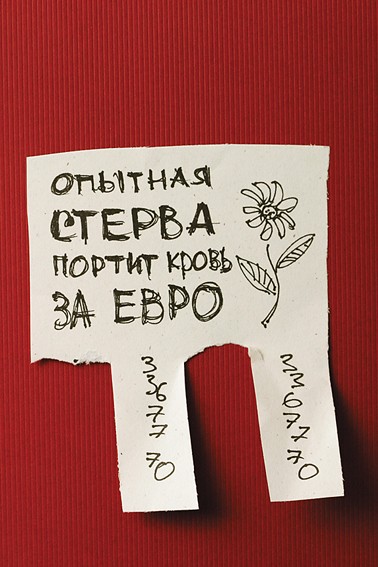 ОПЫТНАЯ
СТЕРВА
ПОРТИТ КРОВЬ
ЗА ЕВРО
3367770
3367770